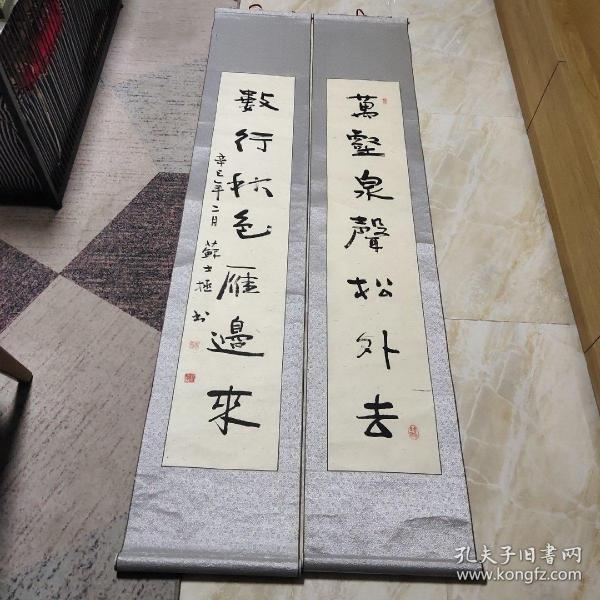 萬壑泉聲松外去
數行秋色雁邊來
辛巳年二月 蘇士極 书
孔夫子旧書网
www.kongfz.com